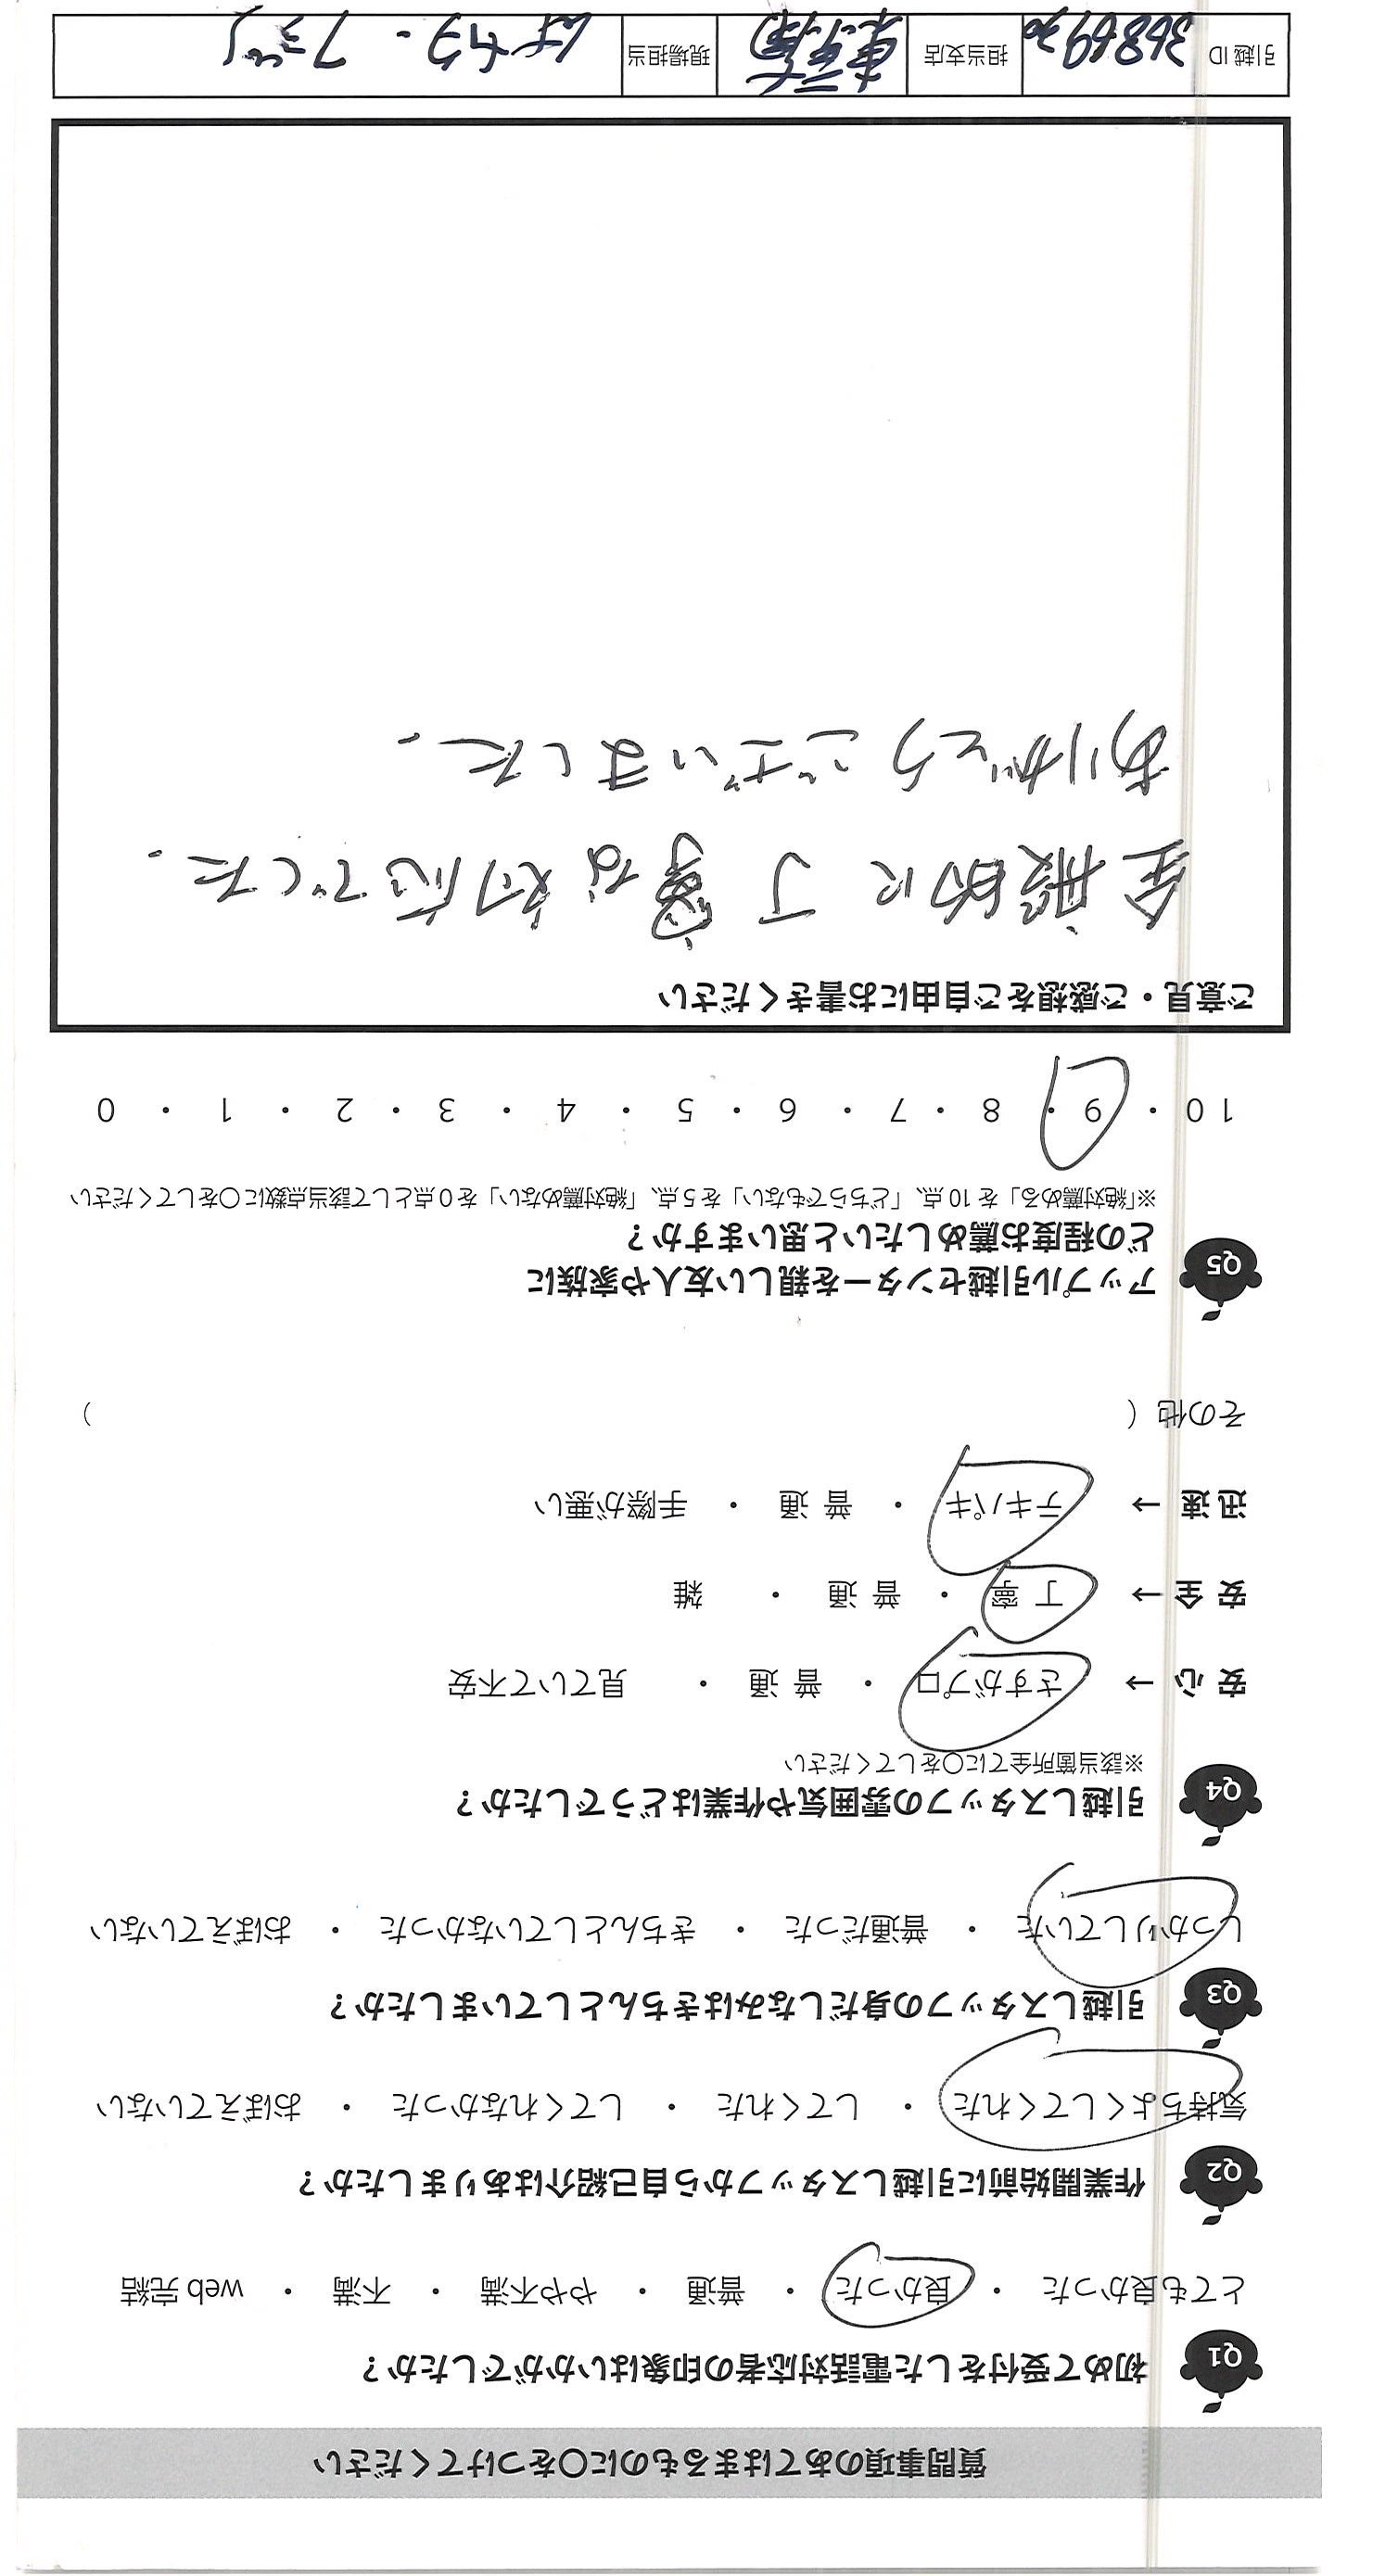 質問事項のあてはまるものに〇をつけてください
Q1 初めて受付をした電話対応者の印象はいかがでしたか？
とても良かった ・ 良かった ・ 普通 ・ やや不満 ・ 不満 ・ web 完結
Q2 作業開始前に引越しスタッフから自己紹介はありましたか？
気持ちよくしてくれた ・ してくれた ・ してくれなかった ・ おぼえていない
Q3 引越しスタッフの身だしなみはきちんとしていましたか？
しっかりしていた ・ 普通だった ・ きちんとしていなかった ・ おぼえていない
Q4 引越しスタッフの雰囲気や作業はどうでしたか？
※該当箇所全てに〇をしてください
安 心 → さすがプロ ・ 普 通 ・ 見ていて不安
安 全 → 丁 寧 ・ 普 通 ・ 雑
迅 速 → テキパキ ・ 普 通 ・ 手際が悪い
その他（ ）
Q5 アップル引越センターを親しい友人や家族に
どの程度お薦めしたいと思いますか？
※「絶対薦める」を 10 点、「どちらでもない」を 5 点、「絶対薦めない」を 0 点として該当点数に〇をしてください
10 ・ 9 ・ 8 ・ 7 ・ 6 ・ 5 ・ 4 ・ 3 ・ 2 ・ 1 ・ 0
ご意見・ご感想をご自由にお書きください
全般的に丁寧な対応でした.
ありがとうございました.
引越 ID 担当支店 現場担当